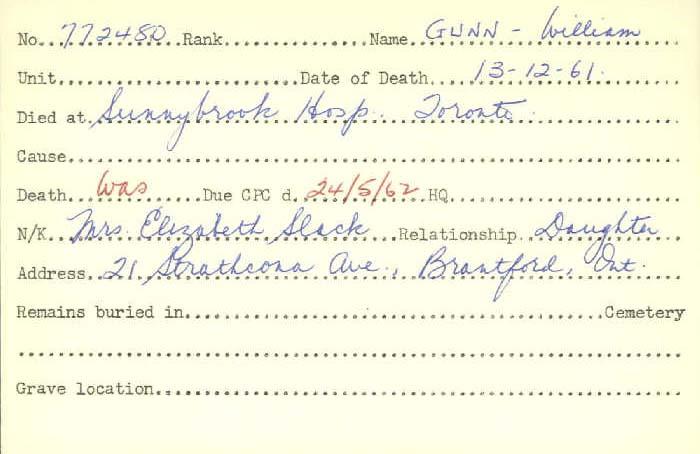 No. 772480 Rank.......... Name. GUNN - William
Unit.......... Date of Death. 13-12-61.
Died at Sunnybrook Hosp. Toronto.
Cause..........
Death. Was Due CPC d. 24/5/62 HQ..........
N/K. Mrs. Elizabeth Slack Relationship. Daughter
Address. 21 Strathcona Ave., Brantford, Ont.
Remains buried in.......... Cemetery
Grave location..........